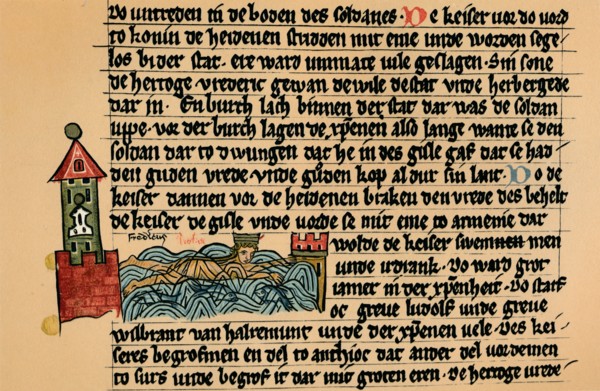 vo vntreden in de boden des soldanes. De keiser vor do vord
to konin de heidenen stridden mit eme unde worden sege
los bi der stat. ere ward unmate vile geslagen. Sin sone
de hertoge vrederic gewan de wile de stat unde herbergede
dar in. En burch lach binnen der stat dar was de soldan
uppe. vor der burch lagen de xp̄enen also lange wante se den
soldan dar to dwungen dat he in des gisle gaf dat se had
den guden vrede. unde guden kop al dur sin lant. Do de
keiser dannen vor de heidenen braken den vrede des behelt
de keiser de gisle unde vorde se mit eme to armenie dar
Fredericus
wolde de keiser swemmen
unde irdrank. Do ward grot
iamer in der xp̄enheit. Do starf
oc greve ludolf unde greve
wilbrant van halremunt unde der xp̄enen vele. Des kei
seres begrofmen en del to anthioc dat ander del vordemen
to surs unde begrof it dar mit groten eren. De hertoge vrede